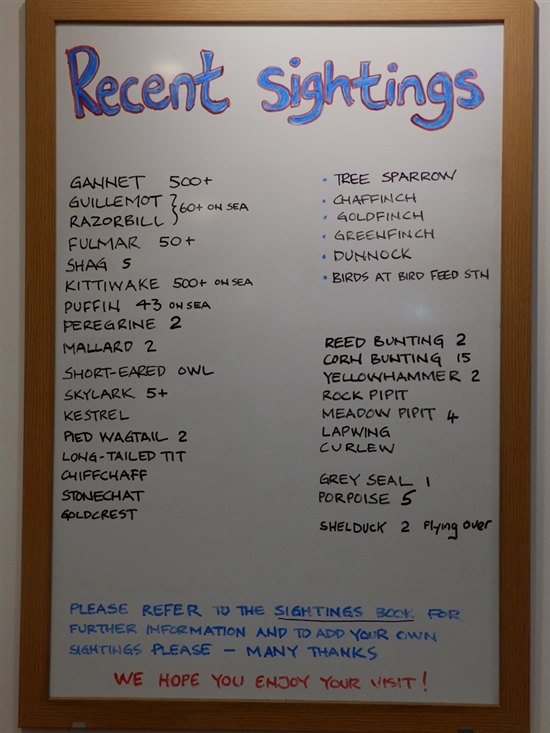 Recent Sightings
GANNET 500+
GUILLEMOT } 60+ ON SEA
RAZORBILL
FULMAR 50+
SHAG 5
KITTIWAKE 500+ ON SEA
PUFFIN 43 ON SEA
PEREGRINE 2
MALLARD 2
SHORT-EARED OWL
SKYLARK 5+
KESTREL
PIED WAGTAIL 2
LONG-TAILED TIT
CHIFFCHAFF
STONECHAT
GOLDCREST
• TREE SPARROW
• CHAFFINCH
• GOLDFINCH
• GREENFINCH
• DUNNOCK
• BIRDS AT BIRD FEED STN
REED BUNTING 2
CORN BUNTING 15
YELLOWHAMMER 2
ROCK PIPIT
MEADOW PIPIT 4
LAPWING
CURLEW
GREY SEAL 1
PORPOISE 5
SHELDUCK 2 Flying over
PLEASE REFER TO THE SIGHTINGS BOOK FOR
FURTHER INFORMATION AND TO ADD YOUR OWN
SIGHTINGS PLEASE – MANY THANKS
WE HOPE YOU ENJOY YOUR VISIT!